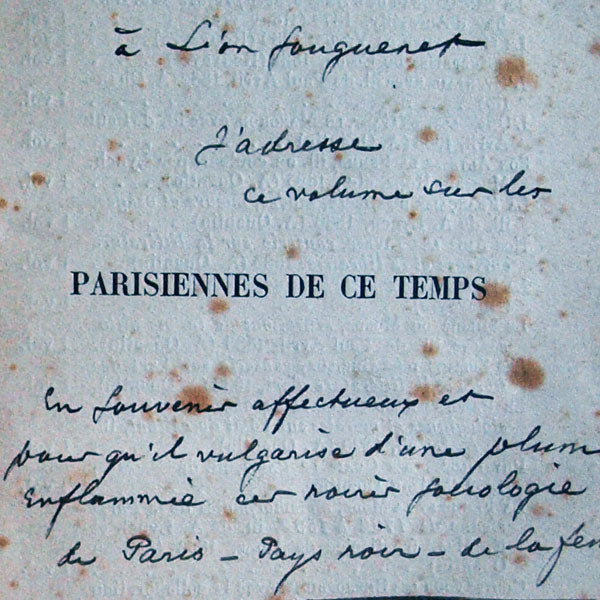 à Léon Souguenet
J'adresse
ce volume sur les
PARISIENNES DE CE TEMPS
En souvenir affectueux et
pour qu'il vulgarise d'une plum
Enflammée ces
de Paris – Pays noir – de la fem